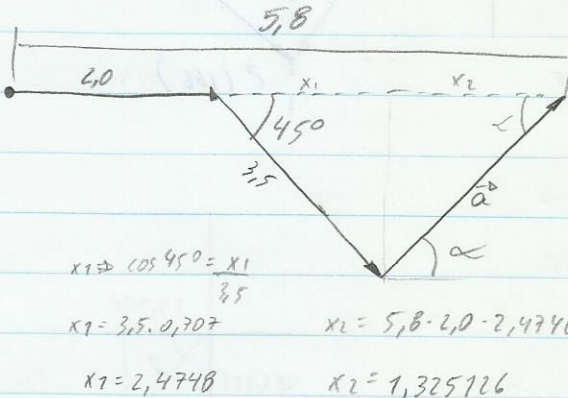 5,8
2,0 x₁ x₂
45° α
3,5 a⃗
α
x1⇒ cos 45° = x1/3,5
x1 = 3,5 . 0,707 x2 = 5,8 - 2,0 - 2,4748
x1 = 2,4748 x2 = 1,325126